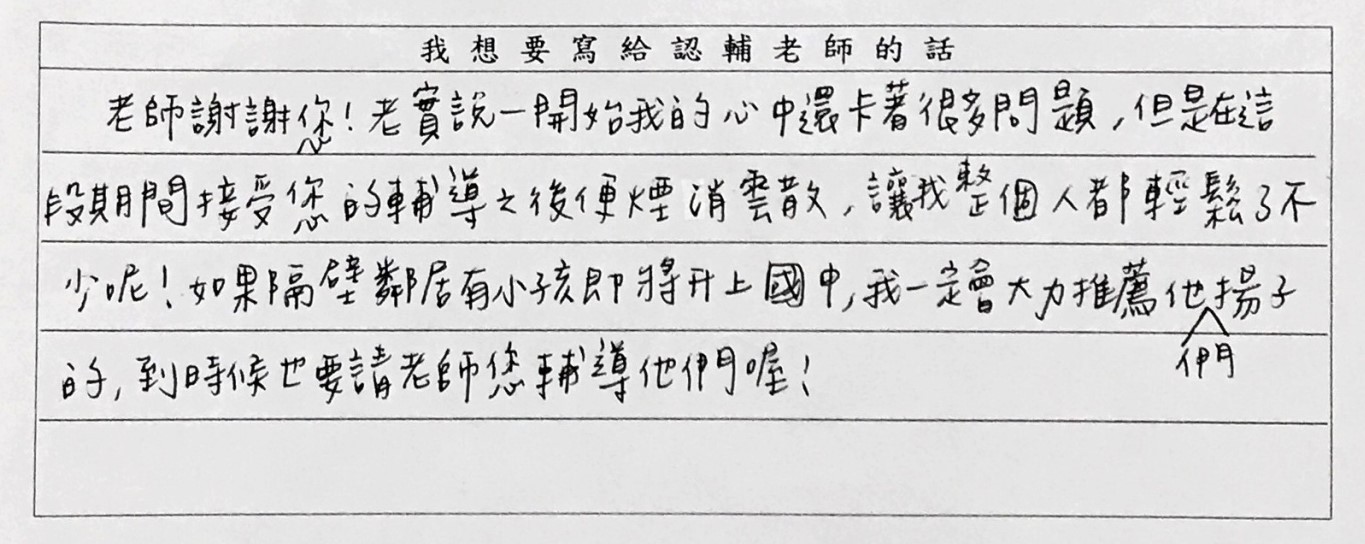 我想要寫給認輔老師的話
老師謝謝您！老實說一開始我的心中還卡著很多問題，但是在這
段期間接受您的輔導之後便煙消雲散，讓我整個人都輕鬆了不
少呢！如果隔壁鄰居有小孩即將升上國中，我一定會大力推薦他們揚子
的，到時候也要請老師您輔導他們喔！